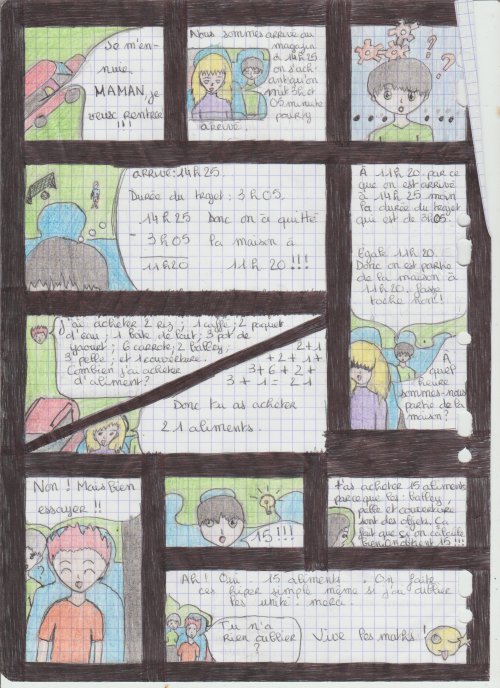 Je m'en-
nuie.
MAMAN je
veux rentrée
!!!
Nous sommes arrivé au
magasin
à 14h25
on s'ach-
antiqu'on
mit 3h et
05 minute
pour y
arrivé.
? ? ?
arrivé: 14h25.
Durée du trajet: 3h05.
14h25 Donc on a quitté
- 3h05 la maison à
11h20 11h20!!!
À 11h20 parce
que on est arrivé
à 14h25 moin
la durée du trajet
qui est de 3h05.
Egale 11h20.
Donc on est partie
de la maison
à 11h20. fasse
toche hen!
À
quel
heure
sommes-nous
partie de la
maison?
j'ai acheter 2 riz; 1 caffé; 2 paquet
d'eau; 1 bote de lait; 3 pot de
yaourt; 6 carote; 2 balley;
3 pelle; et 1 couverture.
Combien j'ai acheter
d'aliment?
2+1
+2+1+
3+6+2+
3+1=21
Donc tu as acheter
21 aliments.
Non! Mais bien
essayer!!
15!!!
t'as acheter 15 aliments
parce que les: balley,
pelle et couverture
sont des objets, ça
fait que si on calcule
bien on obtient 15!!!
Ah! Oui 15 aliments. On faite
c'es hiper simple même si j'ai oublier
les unité! merci.
Tu n'a
rien oublier
?
Vive les maths!